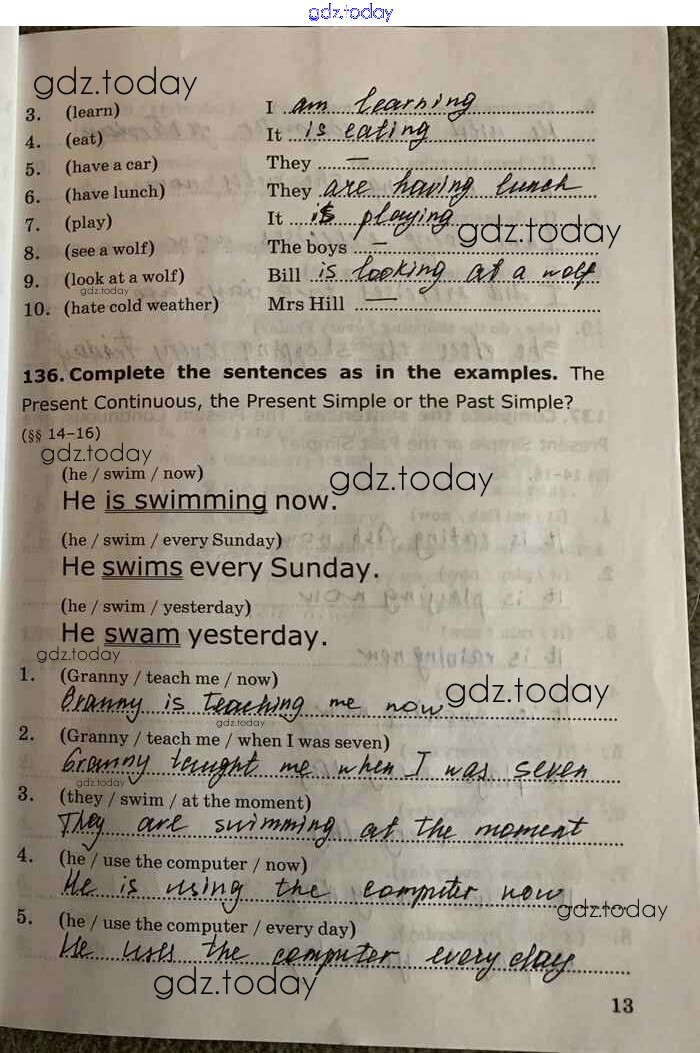 gdz.today
gdz.today
3. (learn) I am learning
4. (eat) It is eating
5. (have a car) They —
6. (have lunch) They are having lunch
7. (play) It is playing
gdz.today
8. (see a wolf) The boys —
9. (look at a wolf) Bill is looking at a wolf
gdz.today
10. (hate cold weather) Mrs Hill —
136. Complete the sentences as in the examples. The
Present Continuous, the Present Simple or the Past Simple?
(§§ 14–16)
gdz.today
(he / swim / now)
gdz.today
He is swimming now.
(he / swim / every Sunday)
He swims every Sunday.
(he / swim / yesterday)
He swam yesterday.
gdz.today
1. (Granny / teach me / now)
gdz.today
Granny is teaching me now
gdz.today
2. (Granny / teach me / when I was seven)
Granny taught me when I was seven
gdz.today
3. (they / swim / at the moment)
They are swimming at the moment
4. (he / use the computer / now)
He is using the computer now
gdz.today
5. (he / use the computer / every day)
He uses the computer every day
gdz.today
13